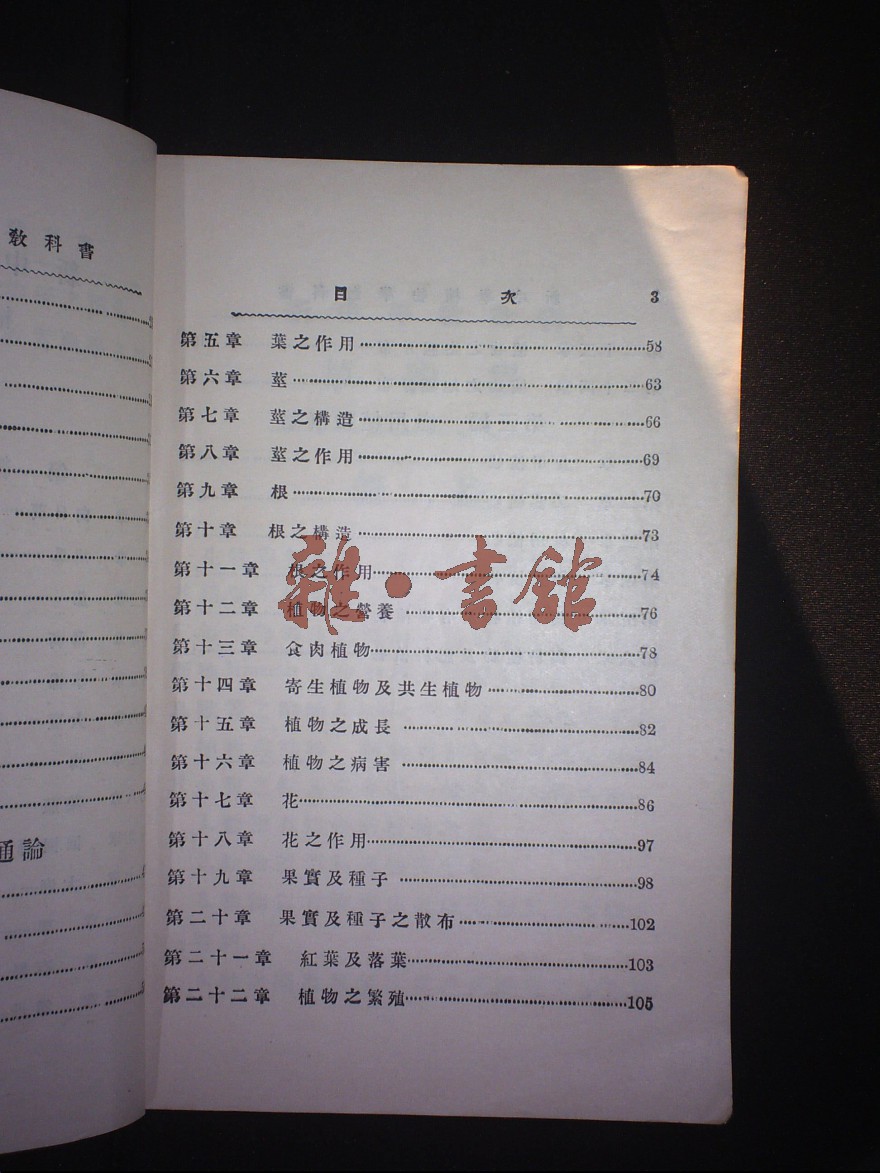 教科書
通論
目次 3
第五章 葉之作用 58
第六章 莖 63
第七章 莖之構造 66
第八章 莖之作用 69
第九章 根 70
第十章 根之構造 73
第十一章 根之作用 74
第十二章 植物之營養 76
第十三章 食肉植物 78
第十四章 寄生植物及共生植物 80
第十五章 植物之成長 82
第十六章 植物之病害 84
第十七章 花 86
第十八章 花之作用 97
第十九章 果實及種子 98
第二十章 果實及種子之散布 102
第二十一章 紅葉及落葉 103
第二十二章 植物之繁殖 105
雜·書館